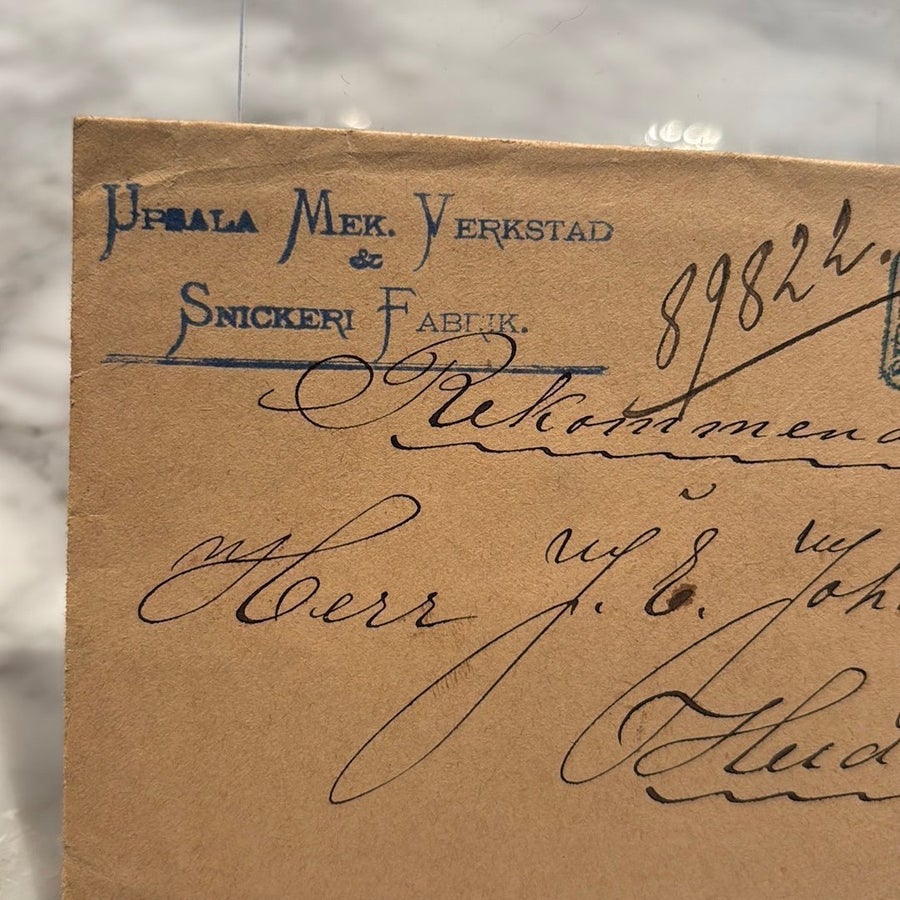 UPSALA MEK. VERKSTAD
&
SNICKERI FABRIK.
89822.
Rekommend
Herr J. E. Joh
Hud